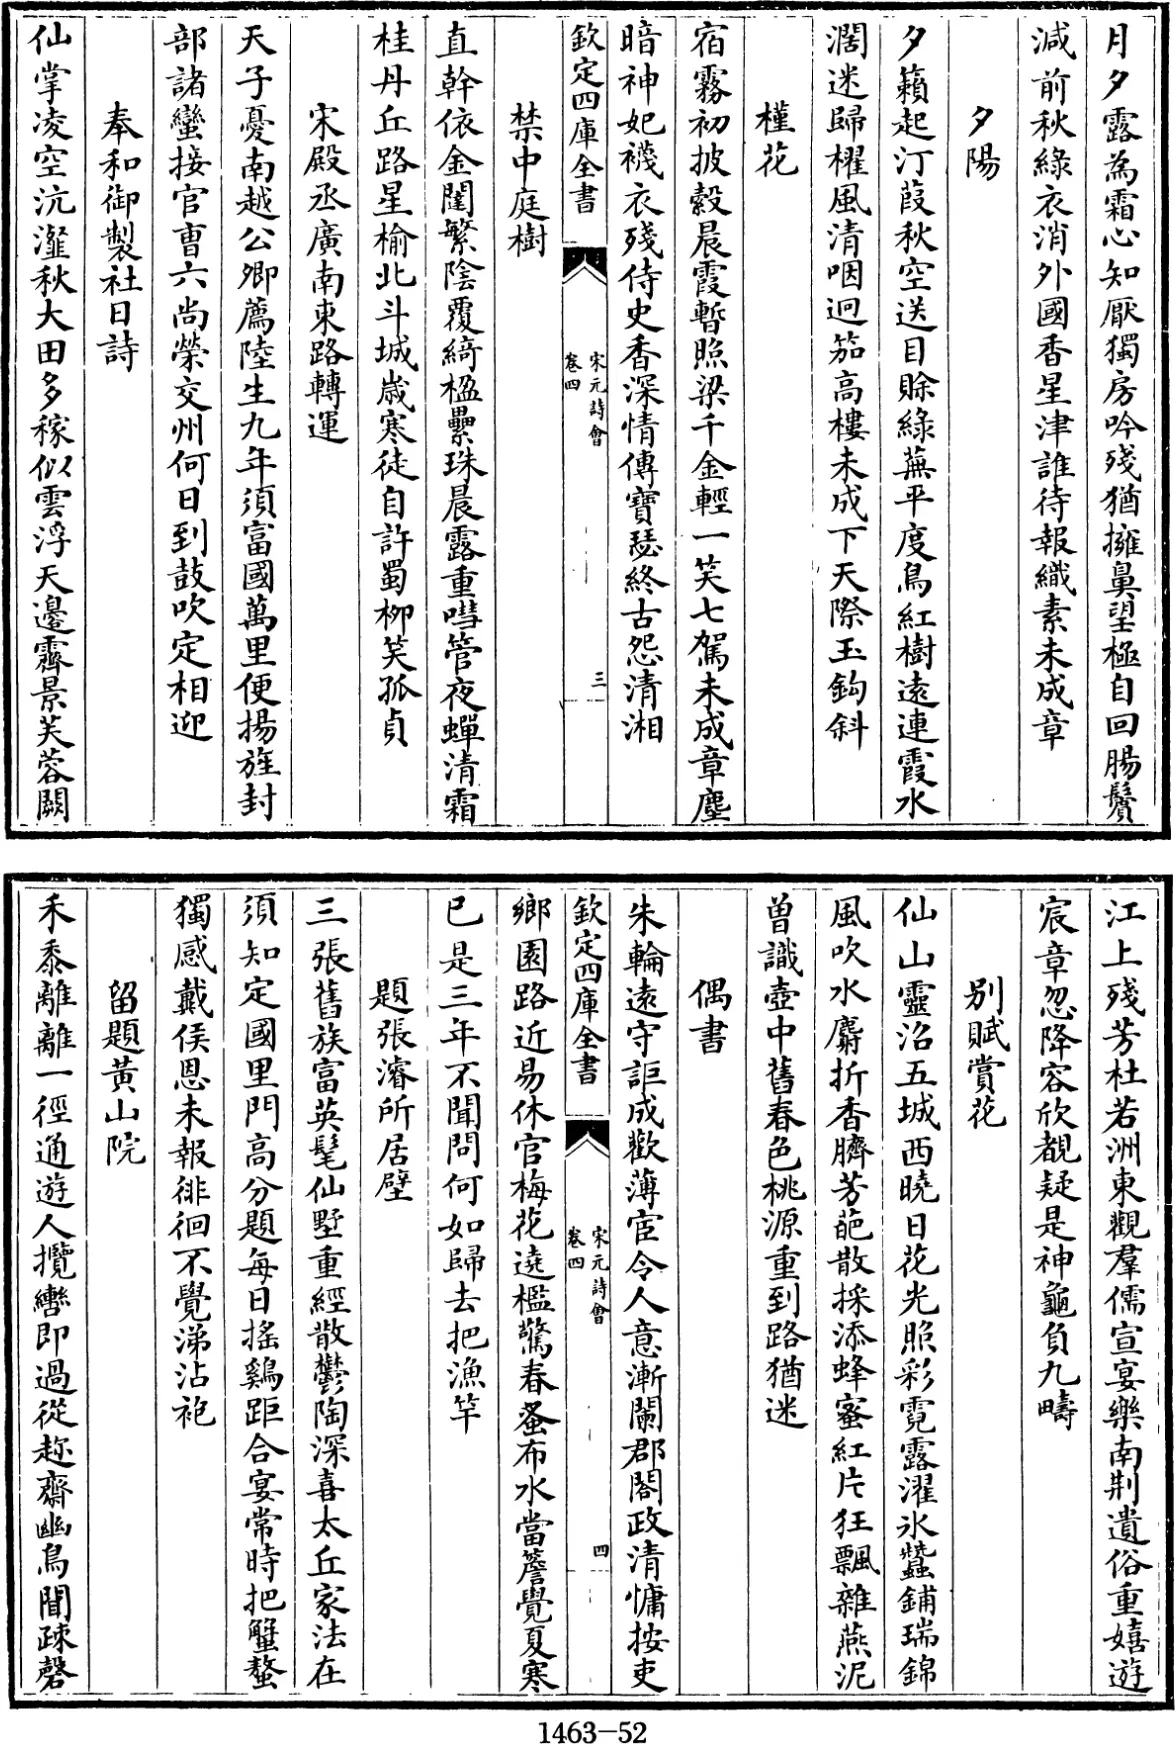 月夕露為霜心知厭獨房吟殘猶擁鼻望極自回腸鬢
減前秋綠衣消外國香星津誰待報織素未成章
夕陽
夕籟起汀葭秋空送目賒綠蕪平度鳥紅樹遠連霞水
濶迷歸櫂風清咽迥笳高樓未成下天際玉鈎斜
槿花
宿霧初披縠晨霞暫照梁千金輕一笑七駕未成章塵
暗神妃襪衣殘侍史香深情傳寶瑟終古怨清湘
欽定四庫全書
宋元詩會
卷四
三
禁中庭樹
直幹依金闥繁陰覆綺楹纍珠晨露重嘒管夜蟬清霜
桂丹丘路星榆北斗城歲寒徒自許蜀柳笑孤貞
宋殿丞廣南東路轉運
天子憂南越公卿薦陸生九年須富國萬里便揚旌封
部諸蠻接官曹六尚榮交州何日到鼓吹定相迎
奉和御製社日詩
仙掌凌空沆瀣秋大田多稼似雲浮天邊霽景芙蓉闕
江上殘芳杜若洲東觀羣儒宣宴樂南荆遺俗重嬉遊
宸章忽降容欣覩疑是神龜負九疇
别賦賞花
仙山靈沼五城西曉日花光照彩霓露濯氷蠶鋪瑞錦
風吹水麝折香臍芳葩散採添蜂蜜紅片狂飄雜燕泥
曽識壺中舊春色桃源重到路猶迷
偶書
朱輪遠守詎成歡薄宦令人意漸闌郡閣政清慵按吏
欽定四庫全書
宋元詩會
卷四
四
鄉園路近易休官梅花遶檻驚春蚤布水當簷覺夏寒
已是三年不聞問何如歸去把漁竿
題張濬所居壁
三張舊族富英髦仙墅重經散鬱陶深喜太丘家法在
須知定國里門高分題每日搖鷄距合宴常時把蟹螯
獨感戴侯恩未報徘徊不覺涕沾袍
留題黄山院
禾黍離離一徑通遊人攬轡即過從趂齋幽鳥聞疎磬
1463-52